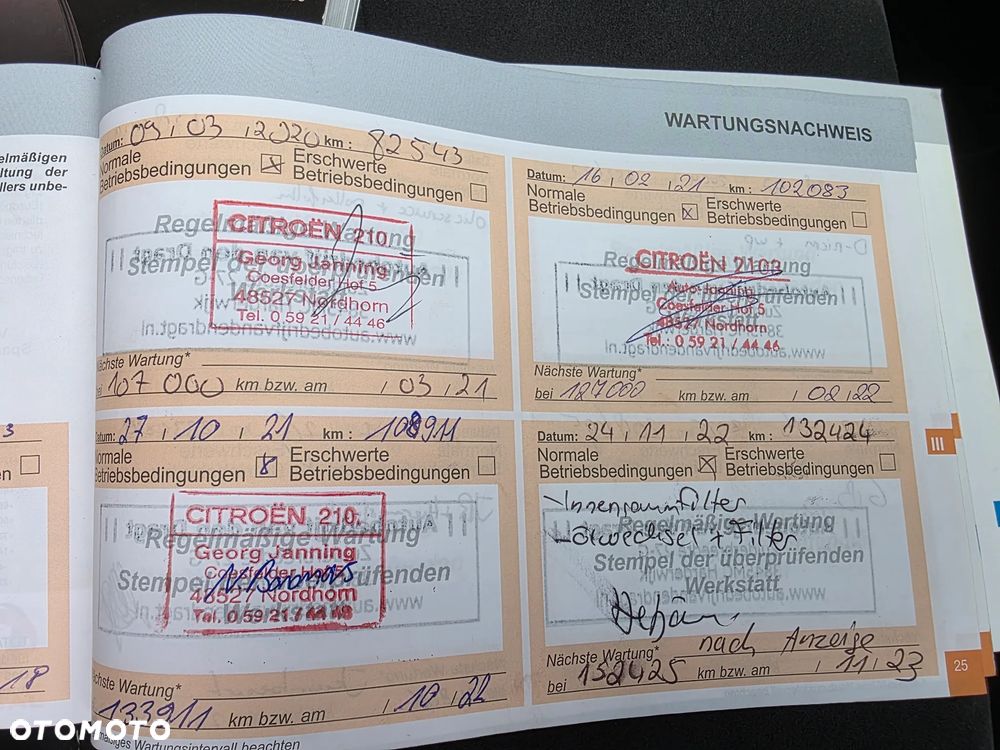 WARTUNGSNACHWEIS
elmäßigen
ltung der
llers unbe-
Datum: 09 . 03 . 2020 km : 82543
Normale
Betriebsbedingungen
Erschwerte
Betriebsbedingungen
Regelmäßige Wartung
Stempel der überprüfenden
CITROËN 210
Georg Janning
Coesfelder Hof 5
48527 Nordhorn
Tel. 0 59 21 / 44 46
Nächste Wartung*
bei 107 000 km bzw. am 03 . 21
Datum: 16 . 02 . 21 km : 102083
Normale
Betriebsbedingungen
Erschwerte
Betriebsbedingungen
Regelmäßige Wartung
Stempel der überprüfenden
Werkstatt
CITROËN 2103
Auto-Janning
Coesfelder Hof 5
48527 Nordhorn
Tel.: 0 59 21 / 44 46
Nächste Wartung*
bei 127000 km bzw. am 02 . 22
Datum: 27 . 10 . 21 km : 108911
Normale
Betriebsbedingungen
Erschwerte
Betriebsbedingungen
Regelmäßige Wartung
Stempel der überprüfenden
Werkstatt
CITROËN 210.
Georg Janning
Coesfelder Hof 5
48527 Nordhorn
Tel. 0 59 21 / 44 46
chste Wartung*
133911 km bzw. am 10 . 22
mäßiges Wartungsintervall beachten
Datum: 24 . 11 . 22 km : 132424
Normale
Betriebsbedingungen
Erschwerte
Betriebsbedingungen
- Innenraumfilter
- Ölwechsel + Filter
Regelmäßige Wartung
Stempel der überprüfenden
Werkstatt
nach Anzeige
Nächste Wartung*
bei 152425 km bzw. am 11 . 23
III
25
3
n
18
OTOMOTO